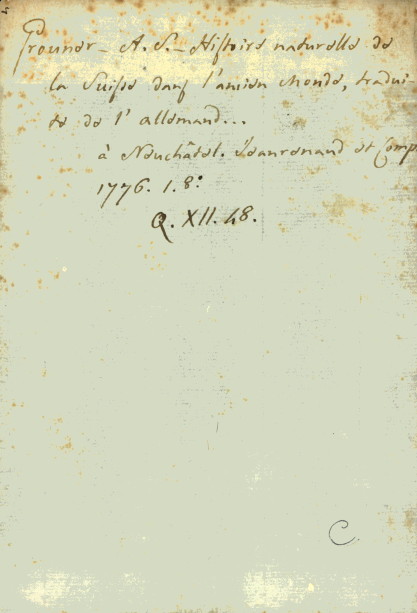 Grouner - A. S. - Histoire naturelle de
la Suisse dans l'ancien monde, tradui-
te de l'allemand...
à Neuchâtel. Jeanrenaud et Comp
1776. 1. 8:
Q. XII. 48.
C